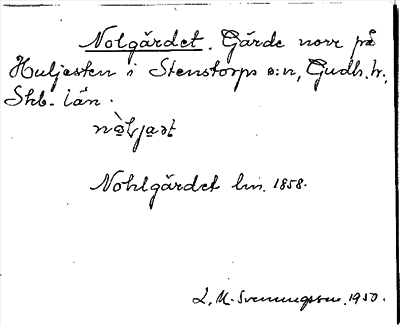 Nolgärdet. Gärde norr på
Huljesten i Stenstorps s:n, Gudh. hr,
Skb. län.
Nohlgärdet lm. 1858.
L. M. Svenungsson. 1950.